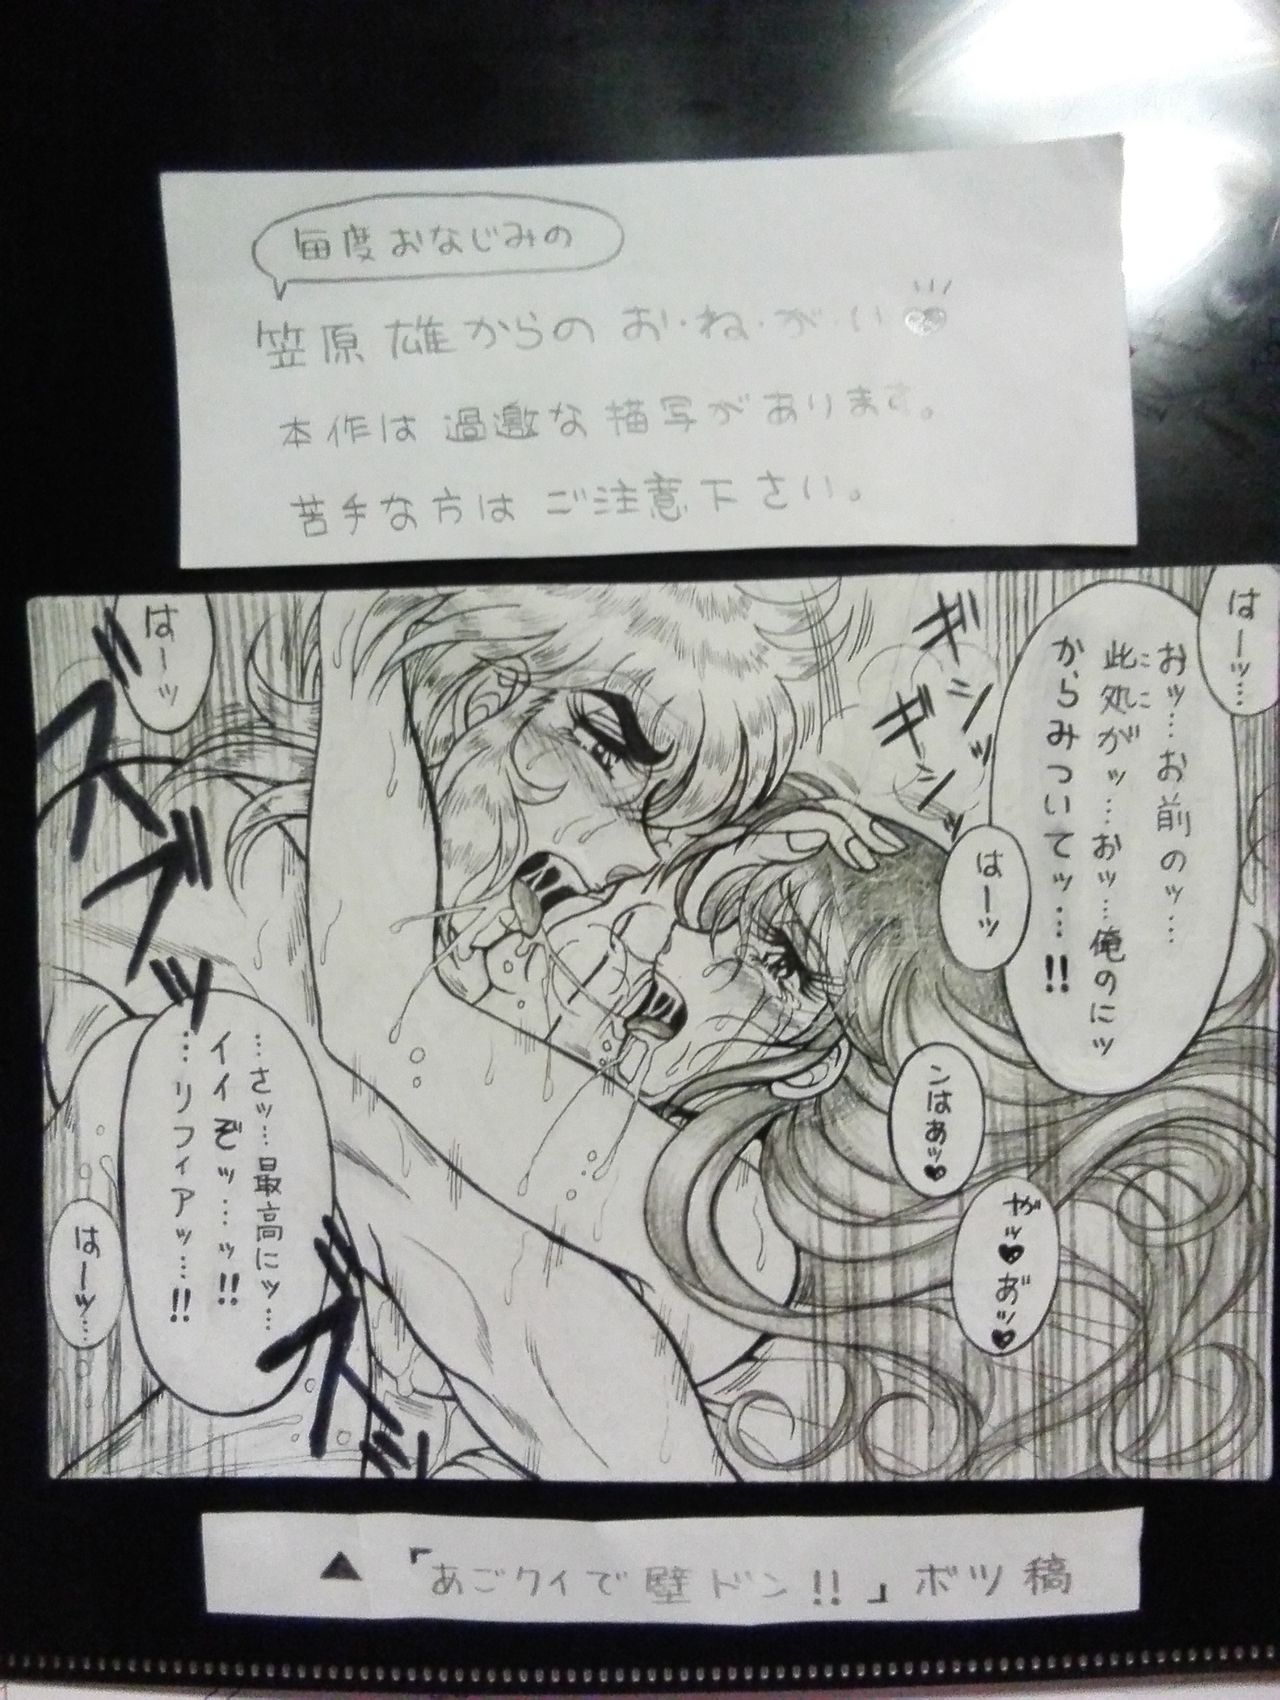 毎度おなじみの
笠原 雄からの お・ね・が・い
本作は 過激な描写があります。
苦手な方は ご注意下さい。
はーッ…
おッ…お前のッ…
此処がッ…おッ…俺のにッ
ここ
からみついてッ…!!
ギシッ
ギシッ
はーッ
はーッ
ンはあッ♥
やッ♥あ゛ッ♥
…さッ…最高にッ…
イイぞッ…ッ!!
…リフィアッ…!!
はーッ…
ズブッ
ズズッ
▲「あごクイで壁ドン!!」ボツ稿